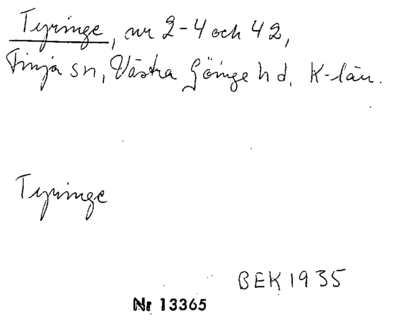 Tyringe, nr 2-4 och 42,
Finja sn, Västra Göinge hd, K-län.
Tyringe
BEK 1935
Nr 13365